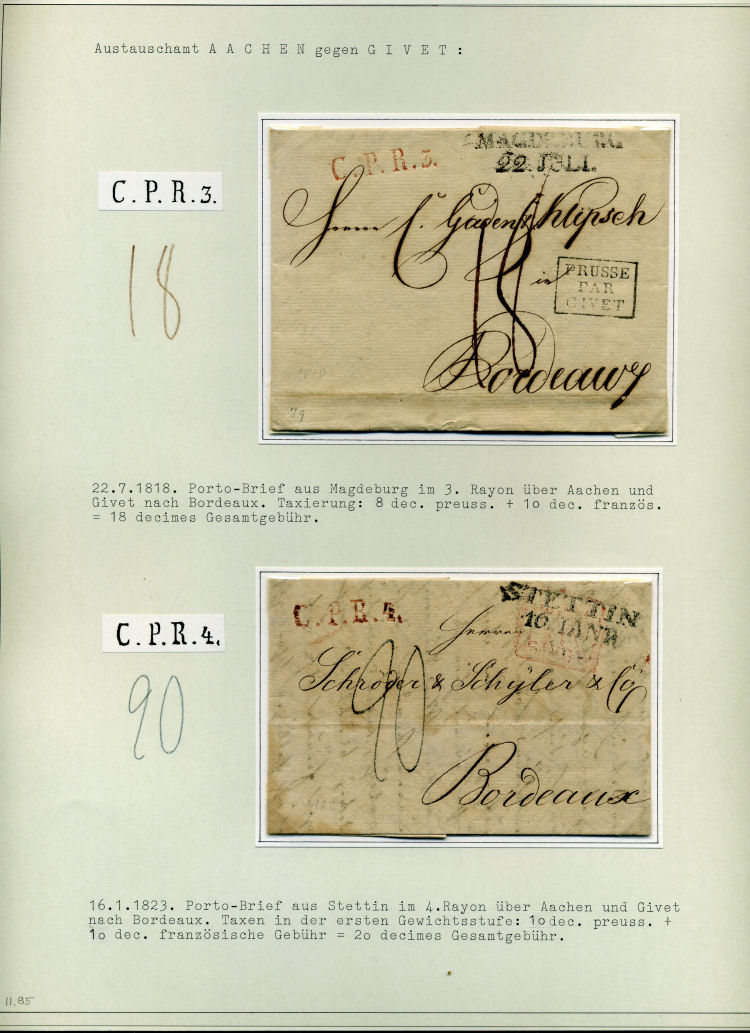 Austauschamt A A C H E N gegen G I V E T :
C. P. R. 3.
MAGDEBURG
22. JULI.
C. P. R. 3.
Herrn C. Gaden & Klipsch
18
18
in
PRUSSE
PAR
GIVET
Bordeaux
79
22.7.1818. Porto-Brief aus Magdeburg im 3. Rayon über Aachen und
Givet nach Bordeaux. Taxierung: 8 dec. preuss. + 1o dec. französ.
= 18 decimes Gesamtgebühr.
C. P. R. 4.
STETTIN
16. IANR
C. P. R. 4.
Herren
Schröder & Schyler & Co
20
20
Bordeaux
16.1.1823. Porto-Brief aus Stettin im 4.Rayon über Aachen und Givet
nach Bordeaux. Taxen in der ersten Gewichtsstufe: 1o dec. preuss. +
1o dec. französische Gebühr = 2o decimes Gesamtgebühr.
11.85